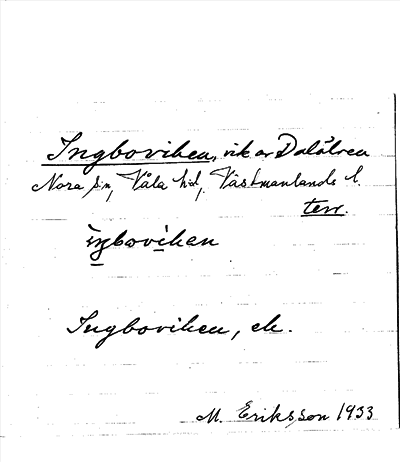 Ingboviken, vik av Dalälven
Nora sn, Våla hd, Västmanlands l.
terr.
ìŋboviken
Ingboviken, ek.
M. Eriksson 1933